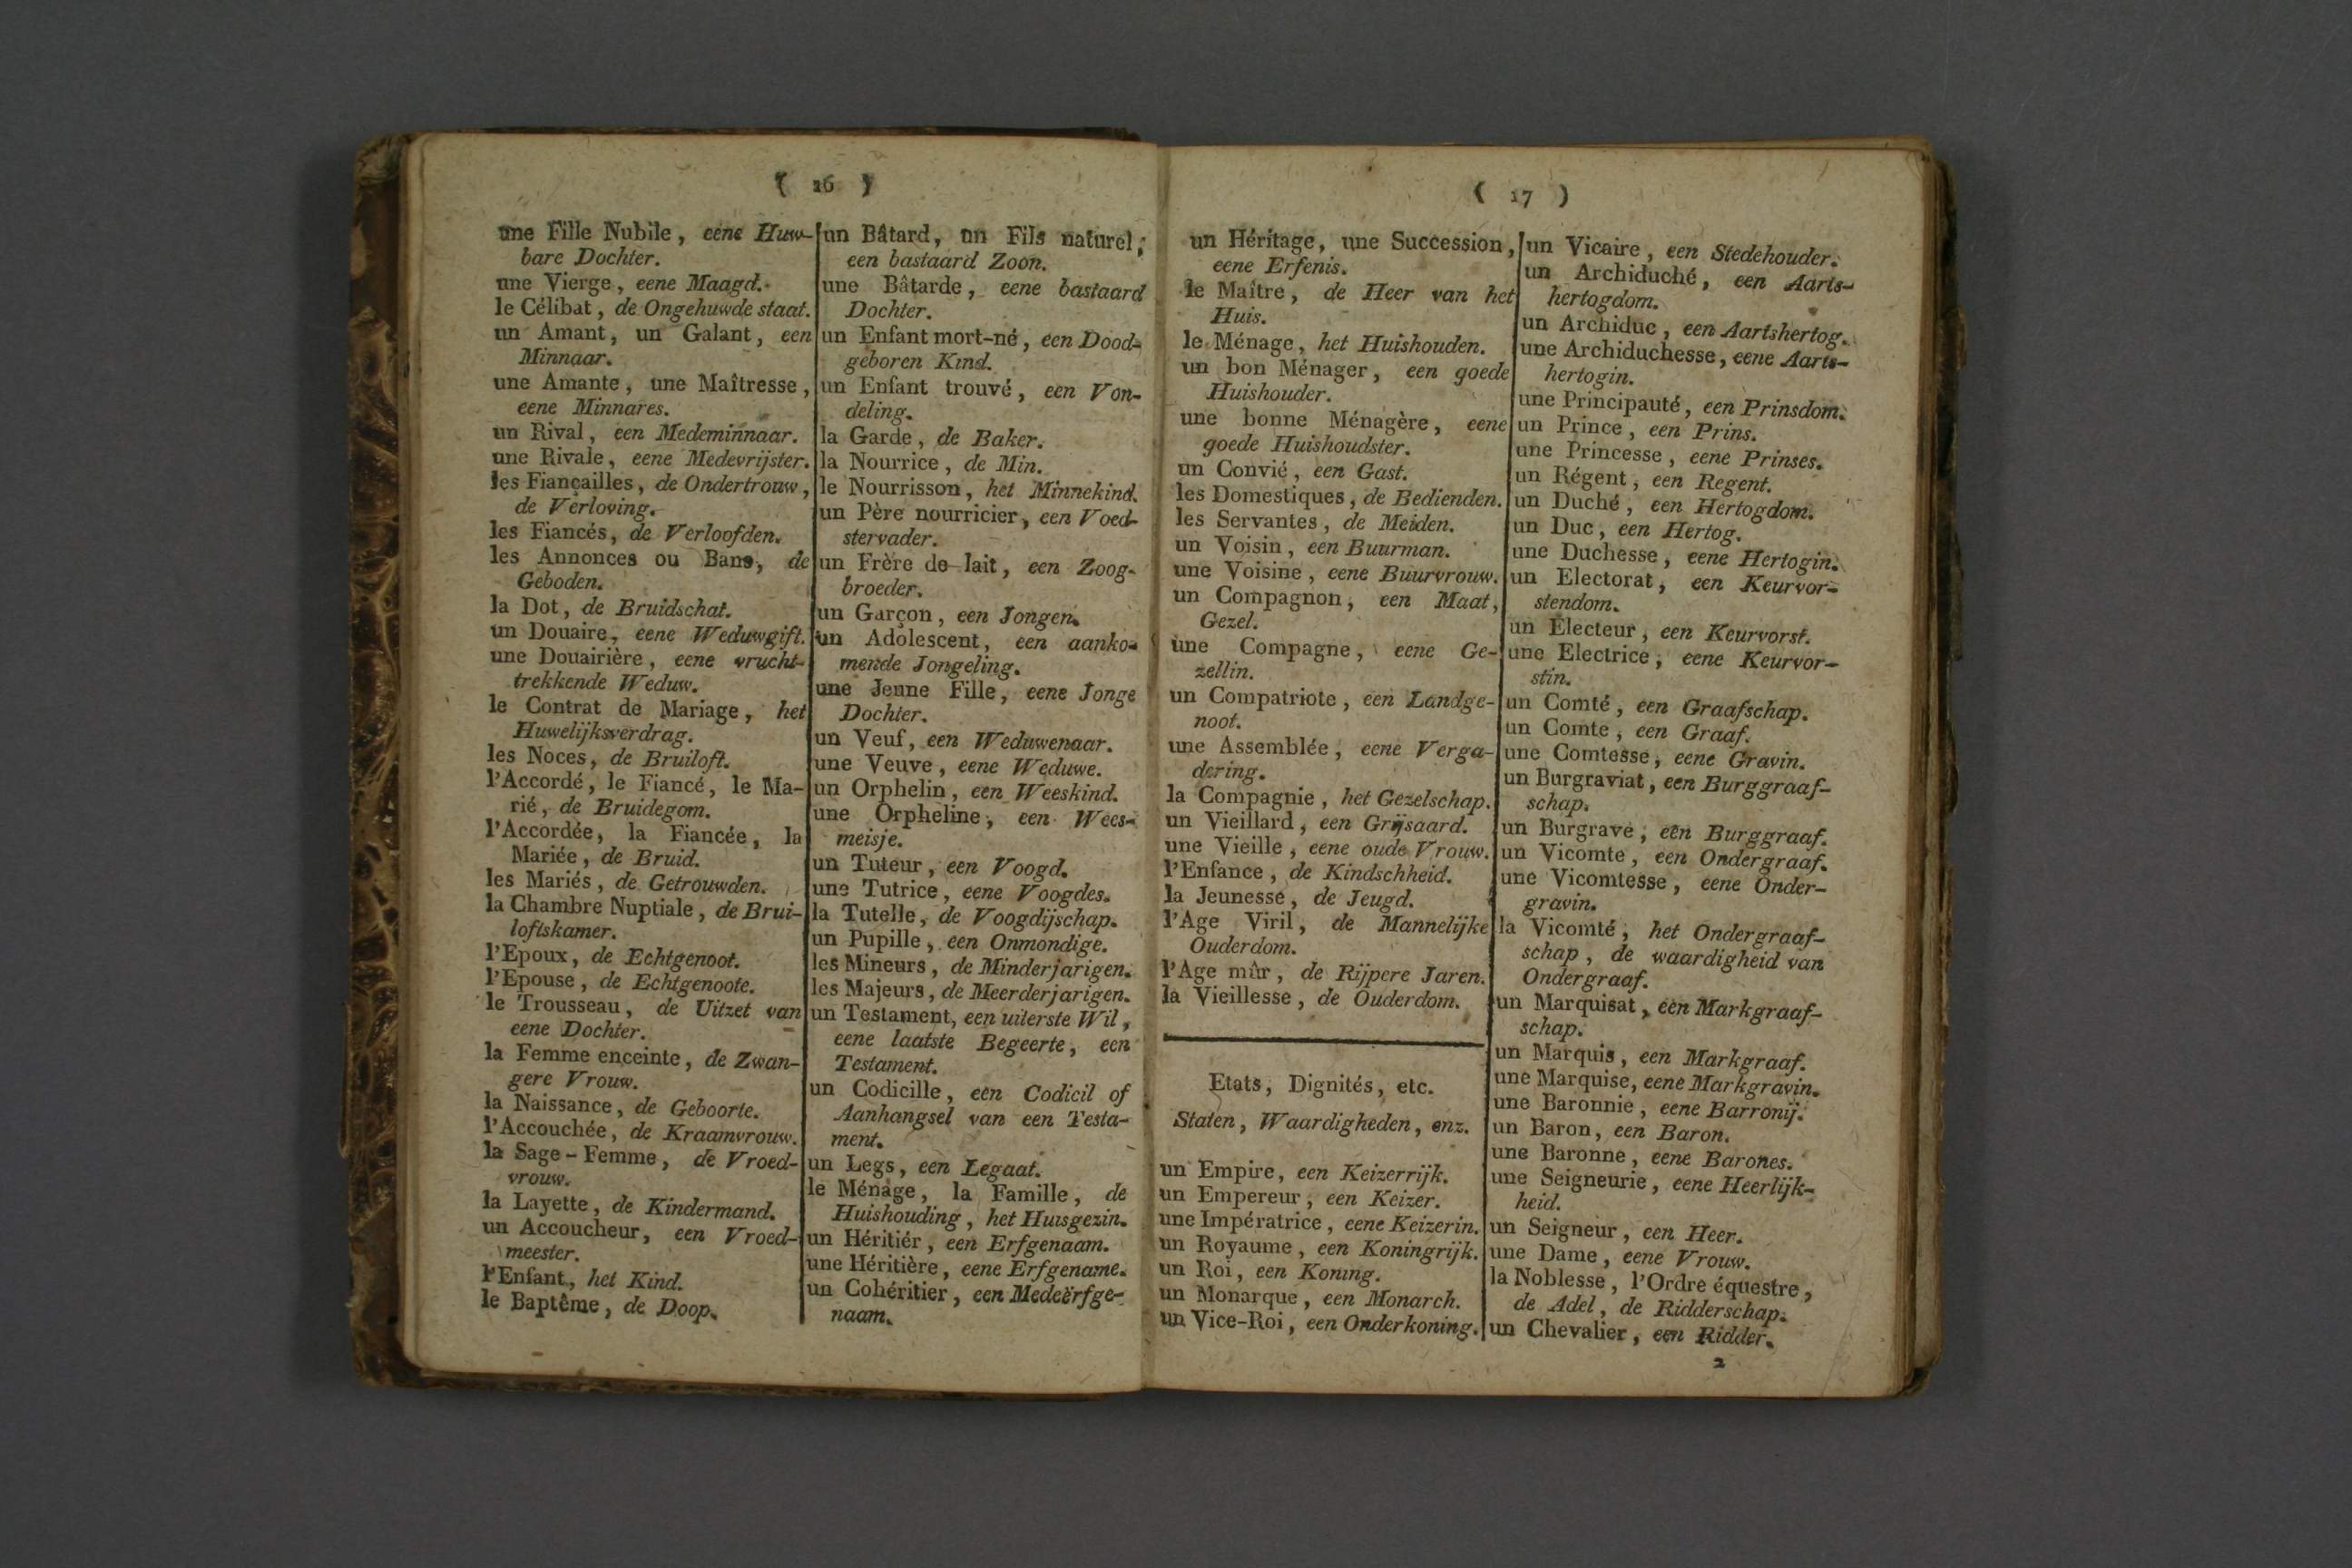 ( 16 )
une Fille Nubile, eene Huw-
bare Dochter.
une Vierge, eene Maagd.
le Célibat, de Ongehuwde staat.
un Amant, un Galant, een
Minnaar.
une Amante, une Maîtresse,
eene Minnares.
un Rival, een Medeminnaar.
une Rivale, eene Medevrijster.
les Fiançailles, de Ondertrouw,
de Verloving.
les Fiancés, de Verloofden.
les Annonces ou Bans, de
Geboden.
la Dot, de Bruidschat.
un Douaire, eene Weduwgift.
une Douairière, eene vrucht-
trekkende Weduw.
le Contrat de Mariage, het
Huwelijksverdrag.
les Noces, de Bruiloft.
l'Accordé, le Fiancé, le Ma-
rié, de Bruidegom.
l'Accordée, la Fiancée, la
Mariée, de Bruid.
les Mariés, de Getrouwden.
la Chambre Nuptiale, de Brui-
loftskamer.
l'Epoux, de Echtgenoot.
l'Epouse, de Echtgenoote.
le Trousseau, de Uitzet van
eene Dochter.
la Femme enceinte, de Zwan-
gere Vrouw.
la Naissance, de Geboorte.
l'Accouchée, de Kraamvrouw.
la Sage-Femme, de Vroed-
vrouw.
la Layette, de Kindermand.
un Accoucheur, een Vroed-
meester.
l'Enfant, het Kind.
le Baptême, de Doop.
un Bâtard, un Fils naturel,
een bastaard Zoon.
une Bâtarde, eene bastaard
Dochter.
un Enfant mort-né, een Dood-
geboren Kind.
un Enfant trouvé, een Von-
deling.
la Garde, de Baker.
la Nourrice, de Min.
le Nourrisson, het Minnekind.
un Père nourricier, een Voed-
stervader.
un Frère de lait, een Zoog-
broeder.
un Garçon, een Jongen.
un Adolescent, een aanko-
mende Jongeling.
une Jeune Fille, eene Jonge
Dochter.
un Veuf, een Weduwenaar.
une Veuve, eene Weduwe.
un Orphelin, een Weeskind.
une Orpheline, een Wees-
meisje.
un Tuteur, een Voogd.
une Tutrice, eene Voogdes.
la Tutelle, de Voogdijschap.
un Pupille, een Onmondige.
les Mineurs, de Minderjarigen.
les Majeurs, de Meerderjarigen.
un Testament, een uiterste Wil,
eene laatste Begeerte, een
Testament.
un Codicille, een Codicil of
Aanhangsel van een Testa-
ment.
un Legs, een Legaat.
le Ménage, la Famille, de
Huishouding, het Huisgezin.
un Héritiér, een Erfgenaam.
une Héritière, eene Erfgename.
un Cohéritier, een Medeërfge-
naam.
( 17 )
un Héritage, une Succession,
eene Erfenis.
le Maître, de Heer van het
Huis.
le Ménage, het Huishouden.
un bon Ménager, een goede
Huishouder.
une bonne Ménagère, eene
goede Huishoudster.
un Convié, een Gast.
les Domestiques, de Bedienden.
les Servantes, de Meiden.
un Voisin, een Buurman.
une Voisine, eene Buurvrouw.
un Compagnon, een Maat,
Gezel.
une Compagne, eene Ge-
zellin.
un Compatriote, een Landge-
noot.
une Assemblée, eene Verga-
dering.
la Compagnie, het Gezelschap.
un Vieillard, een Grijsaard.
une Vieille, eene oude Vrouw.
l'Enfance, de Kindschheid.
la Jeunesse, de Jeugd.
l'Age Viril, de Mannelijke
Ouderdom.
l'Age mûr, de Rijpere Jaren.
la Vieillesse, de Ouderdom.
Etats, Dignités, etc.
Staten, Waardigheden, enz.
un Empire, een Keizerrijk.
un Empereur, een Keizer.
une Impératrice, eene Keizerin.
un Royaume, een Koningrijk.
un Roi, een Koning.
un Monarque, een Monarch.
un Vice-Roi, een Onderkoning.
un Vicaire, een Stedehouder.
un Archiduché, een Aarts-
hertogdom.
un Archiduc, een Aartshertog.
une Archiduchesse, eene Aarts-
hertogin.
une Principauté, een Prinsdom.
un Prince, een Prins.
une Princesse, eene Prinses.
un Régent, een Regent.
un Duché, een Hertogdom.
un Duc, een Hertog.
une Duchesse, eene Hertogin.
un Electorat, een Keurvor-
stendom.
un Électeur, een Keurvorst.
une Electrice, eene Keurvor-
stin.
un Comté, een Graafschap.
un Comte, een Graaf.
une Comtesse, eene Gravin.
un Burgraviat, een Burggraaf-
schap.
un Burgrave, een Burggraaf.
un Vicomte, een Ondergraaf.
une Vicomtesse, eene Onder-
gravin.
la Vicomté, het Ondergraaf-
schap, de waardigheid van
Ondergraaf.
un Marquisat, een Markgraaf-
schap.
un Marquis, een Markgraaf.
une Marquise, eene Markgravin.
une Baronnie, eene Barronij.
un Baron, een Baron.
une Baronne, eene Barones.
une Seigneurie, eene Heerlijk-
heid.
un Seigneur, een Heer.
une Dame, eene Vrouw.
la Noblesse, l'Ordre équestre,
de Adel, de Ridderschap.
un Chevalier, een Ridder.
2